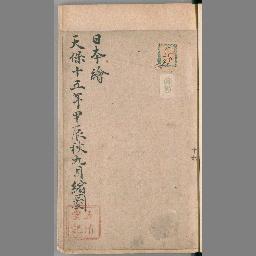 日本繪
天保十五年甲辰秋九月縮圖